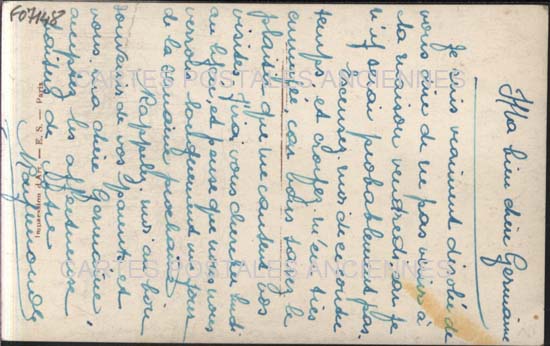 Ma bien chère Germaine
Je suis vraiment désolée de
vous dire de ne pas venir à
la maison vendredi, car je
n'y serai probablement pas.
Excusez-moi de ce contre
temps et croyez m'en très
car vous savez le
plaisir que me causent vos
visites. J'irai vous chercher lundi
au lycée, et pense que nous nous
verrons longuement un jour
de la semaine prochaine.
Rappelez-moi au bon
souvenir de vos parents et
vous, ma chère Germaine,
acceptez les affectueux
baisers de votre
Raymonde
Impression d'Art. — E. S. — Paris
F07148
CARTES POSTALES ANCIENNES
CARTES POSTALES ANCIENNES